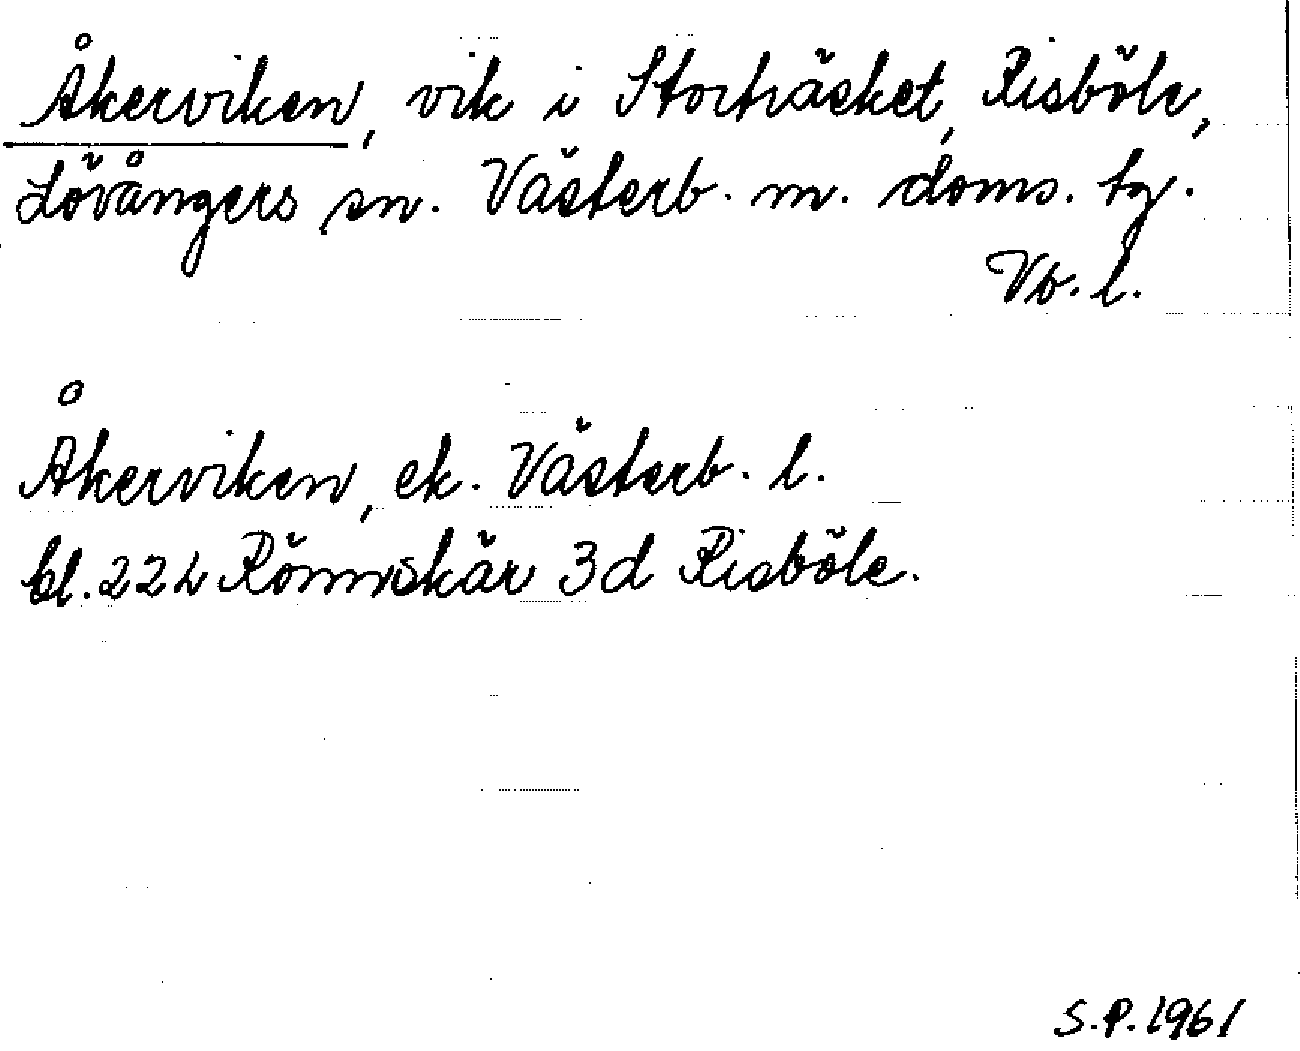 Åkerviken, vik i Storträsket, Risböle,
Lövångers sn. Västerb. m. doms. tg.
Vb. l.
Åkerviken, ek. Västerb. l.
bl. 22 h Rönnskär 3d Risböle.
S.P. 1961